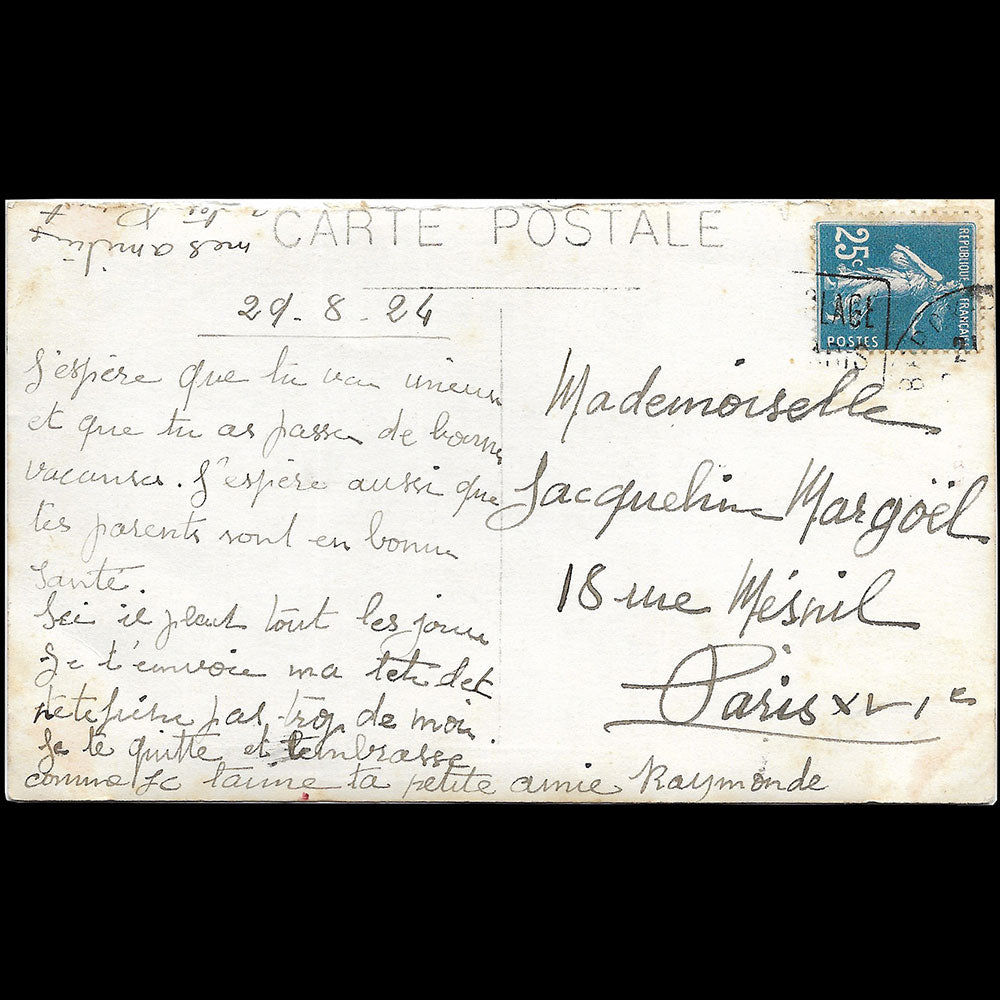 CARTE POSTALE
mes amitiés
29 - 8 - 24
J'espère que tu vas mieux
et que tu as passé de bonnes
vacances. J'espère aussi que
tes parents sont en bonne
santé.
Ici il pleut tout les jours
Je t'envoie ma tête
pas trop de moi
Je te quitte et t'embrasse
comme je t'aime ta petite amie Raymonde
Mademoiselle
Jacqueline Margoël
18 rue Mésnil
Paris XVIe
25c
REPUBLIQUE FRANÇAISE
POSTES